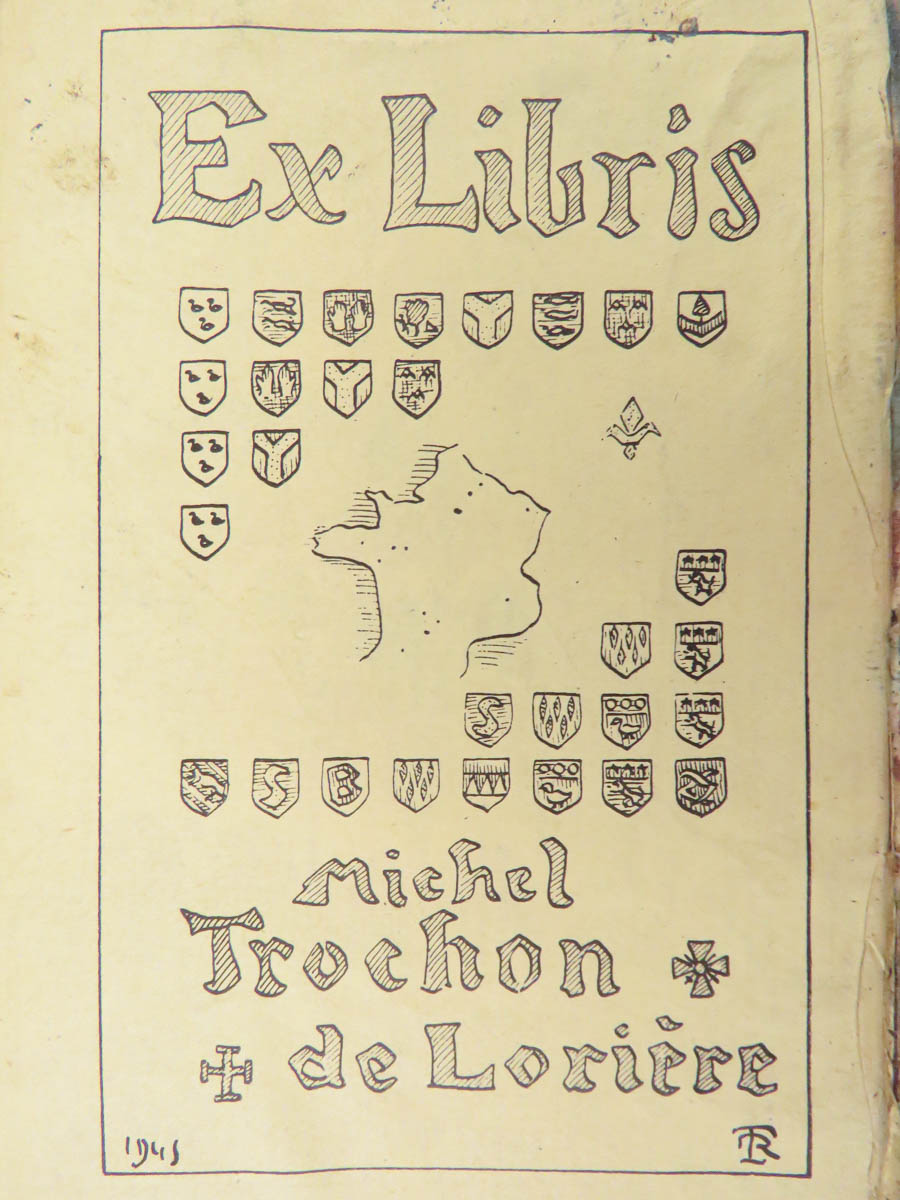 Ex Libris
S
S B
Michel
Trochon
de Lorière
1945 TR